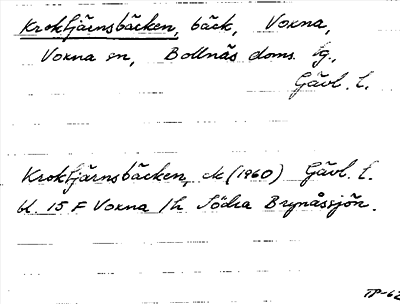 Kroktjärnsbäcken, bäck, Voxna,
Voxna sn, Bollnäs doms. tg.,
Gävl. l.
Kroktjärnsbäcken, ek (1960) Gävl. l.
bl. 15 F Voxna 1h Södra Brynåssjön.
TP-62